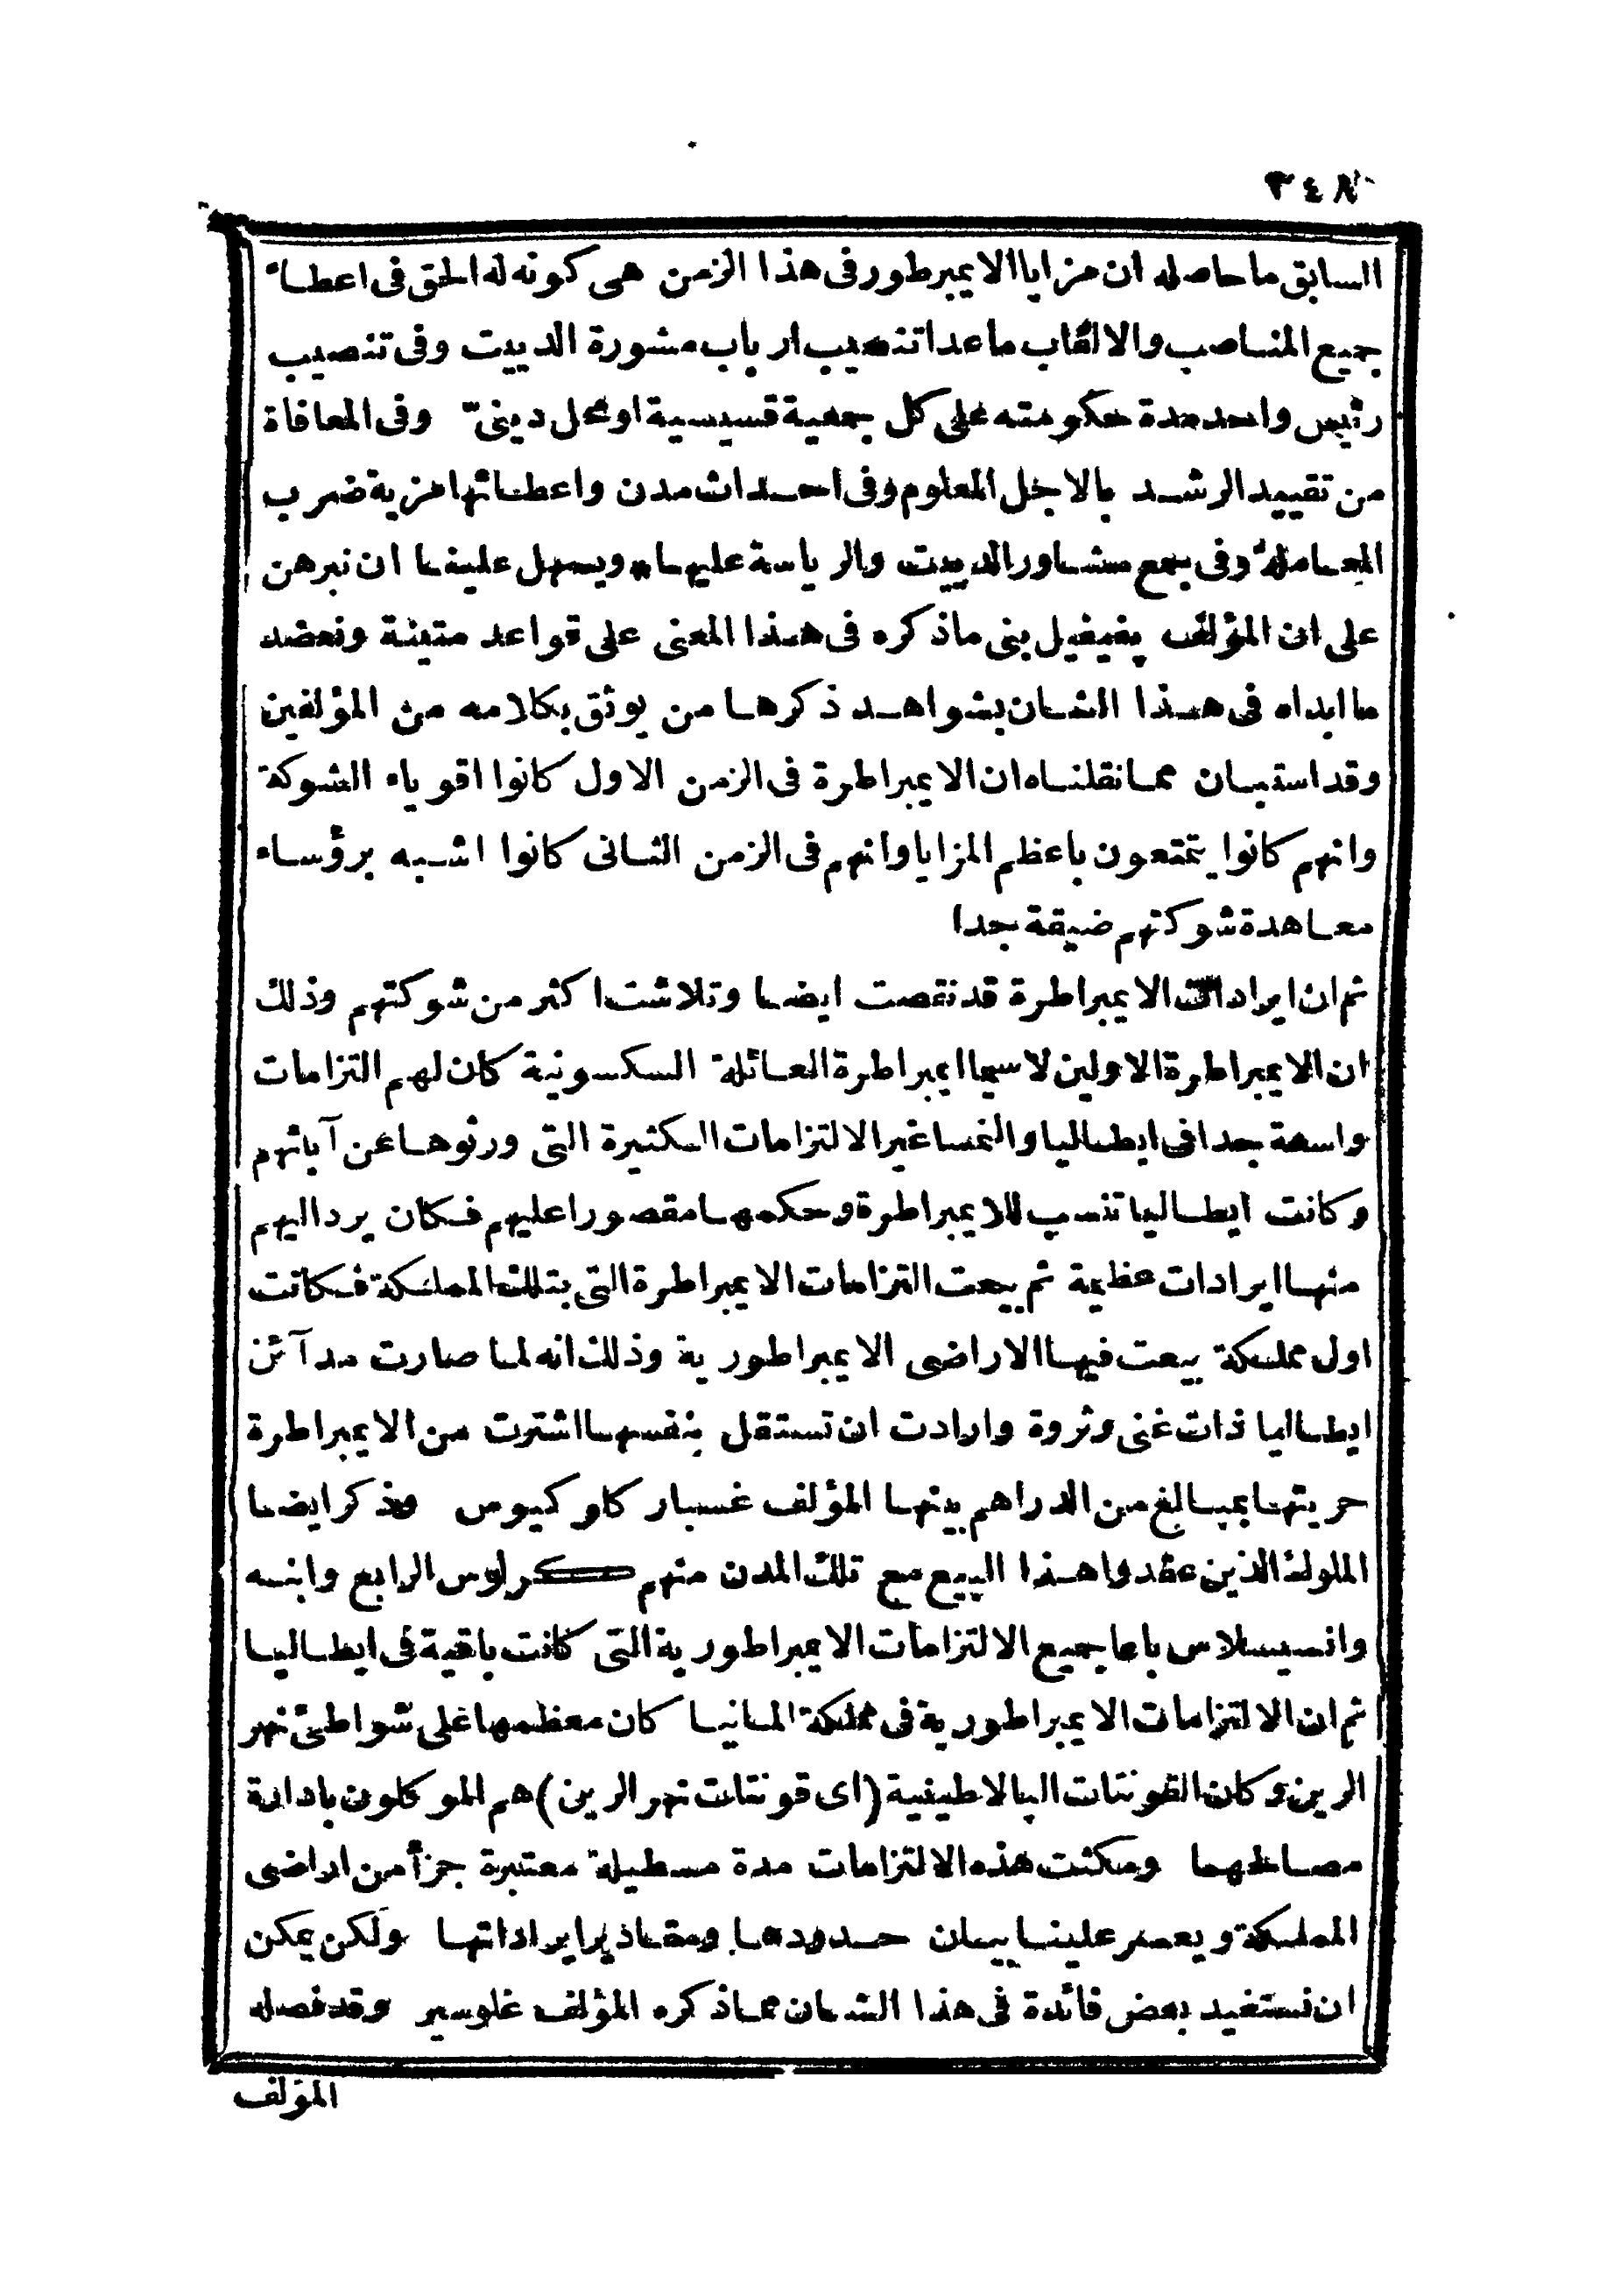 ٣٤٨
السابق ما حاصله ان مزايا الايمبرطور فى هذا الزمن هى كونه له الحق فى اعطاء
جميع المناصب والالقاب ما عدا تنصيب ارباب مشورة الدييت وفى تنصيب
رئيس واحد مدة حكومته على كل جمعية قسيسية او محل دينىّ وفى المعافاة
من تقييد الرشد بالاجل المعلوم وفى احداث مدن واعطائها مزية ضرب
المعاملة وفى جمع مشاور الدييت والرياسة عليها ويسهل علينا ان نبرهن
على ان المؤلف پفيفيل بنى ماذكره فى هذا المعنى على قواعد متينة ونعضد
ما ابداه فى هذا الشان بشواهد ذكرها من يوثق بكلامه من المؤلفين
وقد استبان مما نقلناه ان الايمبراطرة فى الزمن الاول كانوا اقوياء الشوكة
وانهم كانوا يتمتعون باعظم المزايا وانهم فى الزمن الثانى كانوا اشبه برؤساء
معاهدة شوكتهم ضيقة جدا
ثم ان ايرادات الايمبراطرة قد نقصت ايضا وتلاشت اكثر من شوكتهم وذلك
ان الايمبراطرة الاولين لاسيما ايمبراطرة العائلة السكسونية كان لهم التزامات
واسعة جدا فى ايطاليا والنمسا غير الالتزامات الكثيرة التى ورثوها عن آبائهم
وكانت ايطاليا تنسب للايمبراطرة وحكمها مقصورا عليهم فكان يرد اليهم
منها ايرادات عظيمة ثم بيعت التزامات الايمبراطرة التى بتلك المملكة فكانت
اول مملكة بيعت فيها الاراضى الايمبراطورية وذلك انه لما صارت مدآئن
ايطاليا ذات غنى وثروة وارادت ان تستقل بنفسها اشترت من الايمبراطرة
حريتها بمبالغ من الدراهم بينها المؤلف غسبار كاوكيوس وذكر ايضا
الملوك الذين عقدوا هذا البيع مع تلك المدن منهم كرلوس الرابع وابنه
وانسيسلاس باعا جميع الالتزامات الايمبراطورية التى كانت باقية فى ايطاليا
ثم ان الالتزامات الايمبراطورية فى مملكة المانيا كان معظمها على شواطئ نهر
الرين وكان القونتات البالاطينية (اى قونتات نهر الرين) هم الموكلون بادارة
مصالحها ومكثت هذه الالتزامات مدة مسطيلة معتبرة جزأ من اراضى
المملكة ويعسر علينا بيان حدودها ومقادير ايراداتها ولكن يمكن
ان نستفيد بعض فائدة فى هذا الشان مما ذكره المؤلف غلوسير وقد فصله
المؤلف